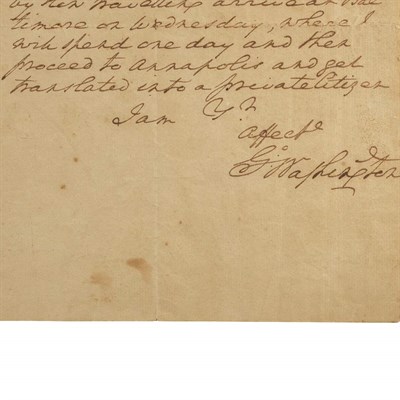 by her travelling arrive at Bal
timore on Wednesday, where I
will spend one day and then
proceed to Annapolis and get
translated into a private Citizen
I am Yr.
affecte
Go Washington